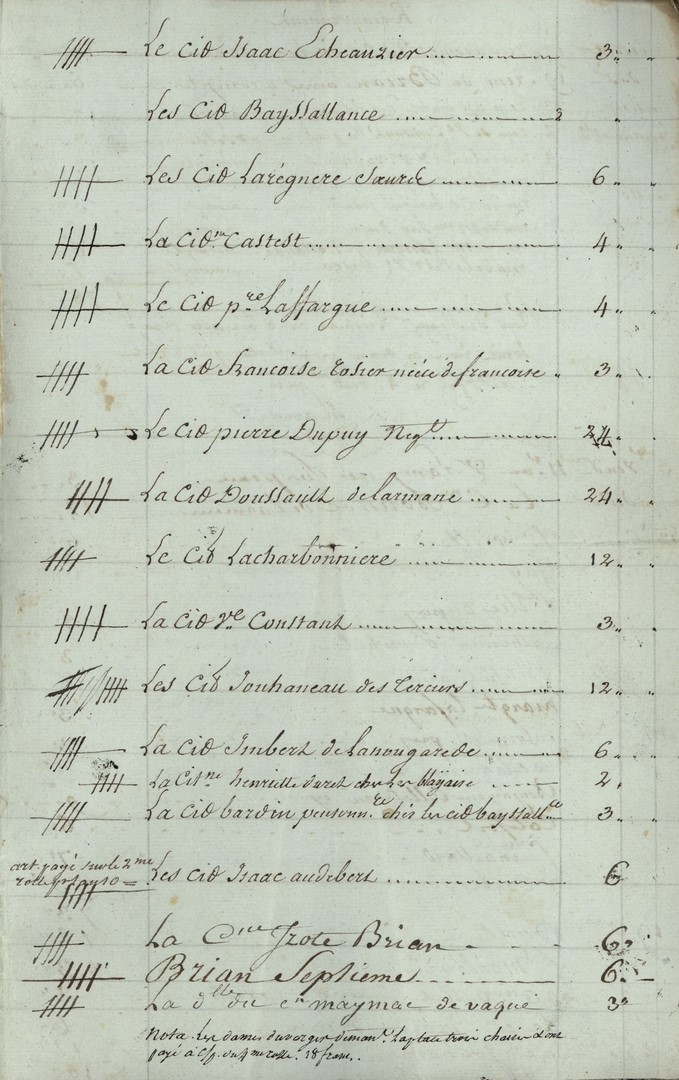 Le Cid Isaac Echeauzier 3 " "
Les Cid Bayssallance 2 "
Les Cid Larégnere 6 " "
La Cid.ne Castest 4 " "
Le Cid p.re Laffargue 4 " "
La Cid francoise rosier niéce de francoise " 3 "
Le Cid pierre Dupuy Neg.t 24 "
La Cid Doussault de larmane 24 "
Le Cid Lacharbonniere 12 " "
La Cid V.e Constant 3 " "
Les Cid Jouhaneau des Terciers 12 " "
La Cid Imbert de Lanougarede 6 "
La Cit.ne henriette duret chez 2 "
La Cid bardin pensionn.re chés les cid bayssall.ce 3 "
art. payé sur le 2.me
Les Cid Isaac audebert 6
La C.ne Brian 6 "
Brian Septieme 6 "
La d.lle du c.n maymac de vaqué 3 "
Nota. Les dames duverger Laplace trois chaises
payé à 4.me rolle. 18 francs.